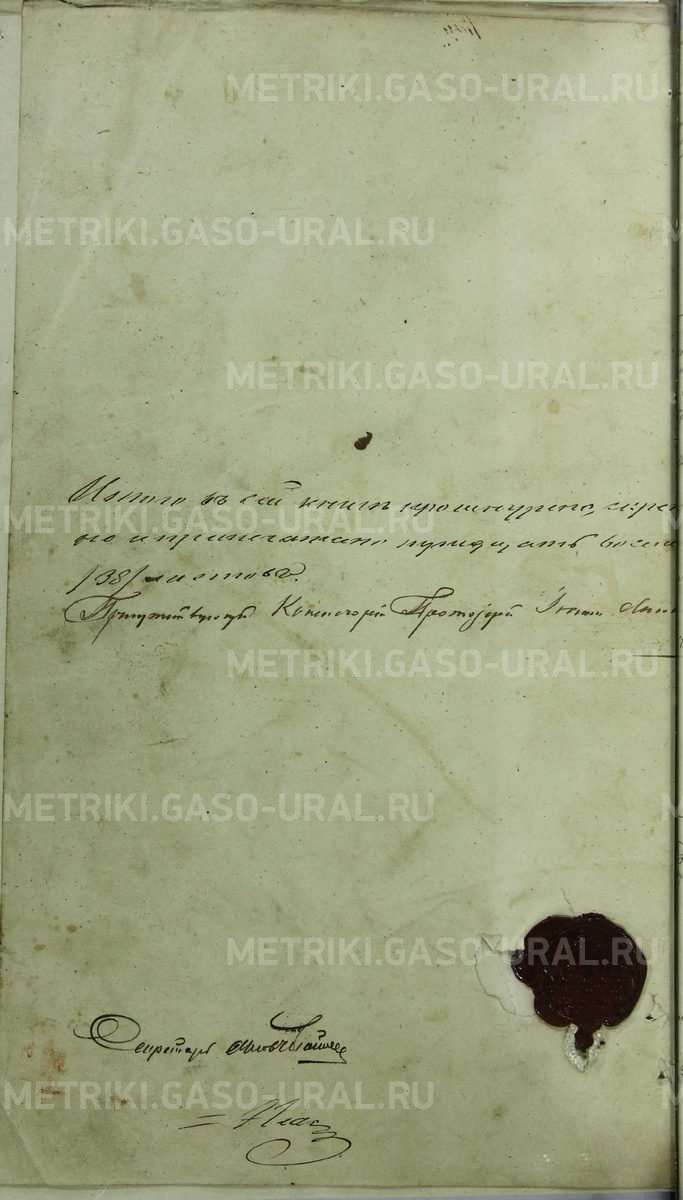 METRIKI.GASO-URAL.RU
METRIKI.GASO-URAL.RU
METRIKI.GASO-URAL.RU
Итого въ сей книгѣ прошнуровано, скреп
но и припечатано тридцать восемь
/38/ листовъ.
METRIKI.GASO-URAL.RU
Присутствующій Консисторіи Протоіерей Іоаннъ
METRIKI.GASO-URAL.RU
METRIKI.GASO-URAL.RU
METRIKI.GASO-URAL.RU
Секретарь
METRIKI.GASO-URAL.RU